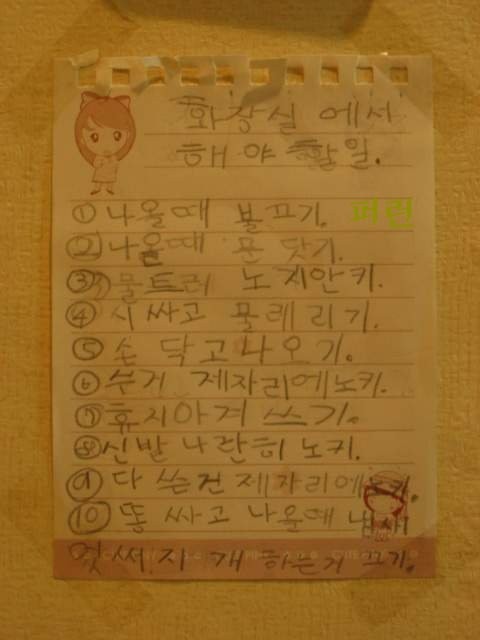 화장실 에서
해야 할일.
① 나올때 불끄기. 퍼런
② 나올때 문 닷기.
③ 물트러 노치안키.
④ 시싸고 물레리기.
⑤ 손 닥고나오기.
⑥ 수거 제자리에노키.
⑦ 휴지아겨 쓰기.
⑧ 신발 나란히 노키.
⑨ 다 쓴건 제자리에노키.
⑩ 똥 싸고 나올때 냄새
멋써지개 하는거 끄기.